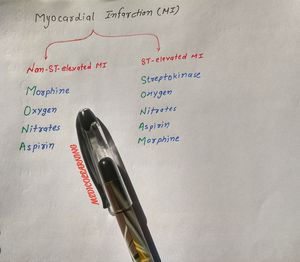 Myocardial Infarction (MI)
Non-ST-elevated MI
Morphine
Oxygen
Nitrates
Aspirin
ST-elevated MI
Streptokinase
Oxygen
Nitrates
Aspirin
Morphine
MEDICOZEARDANO